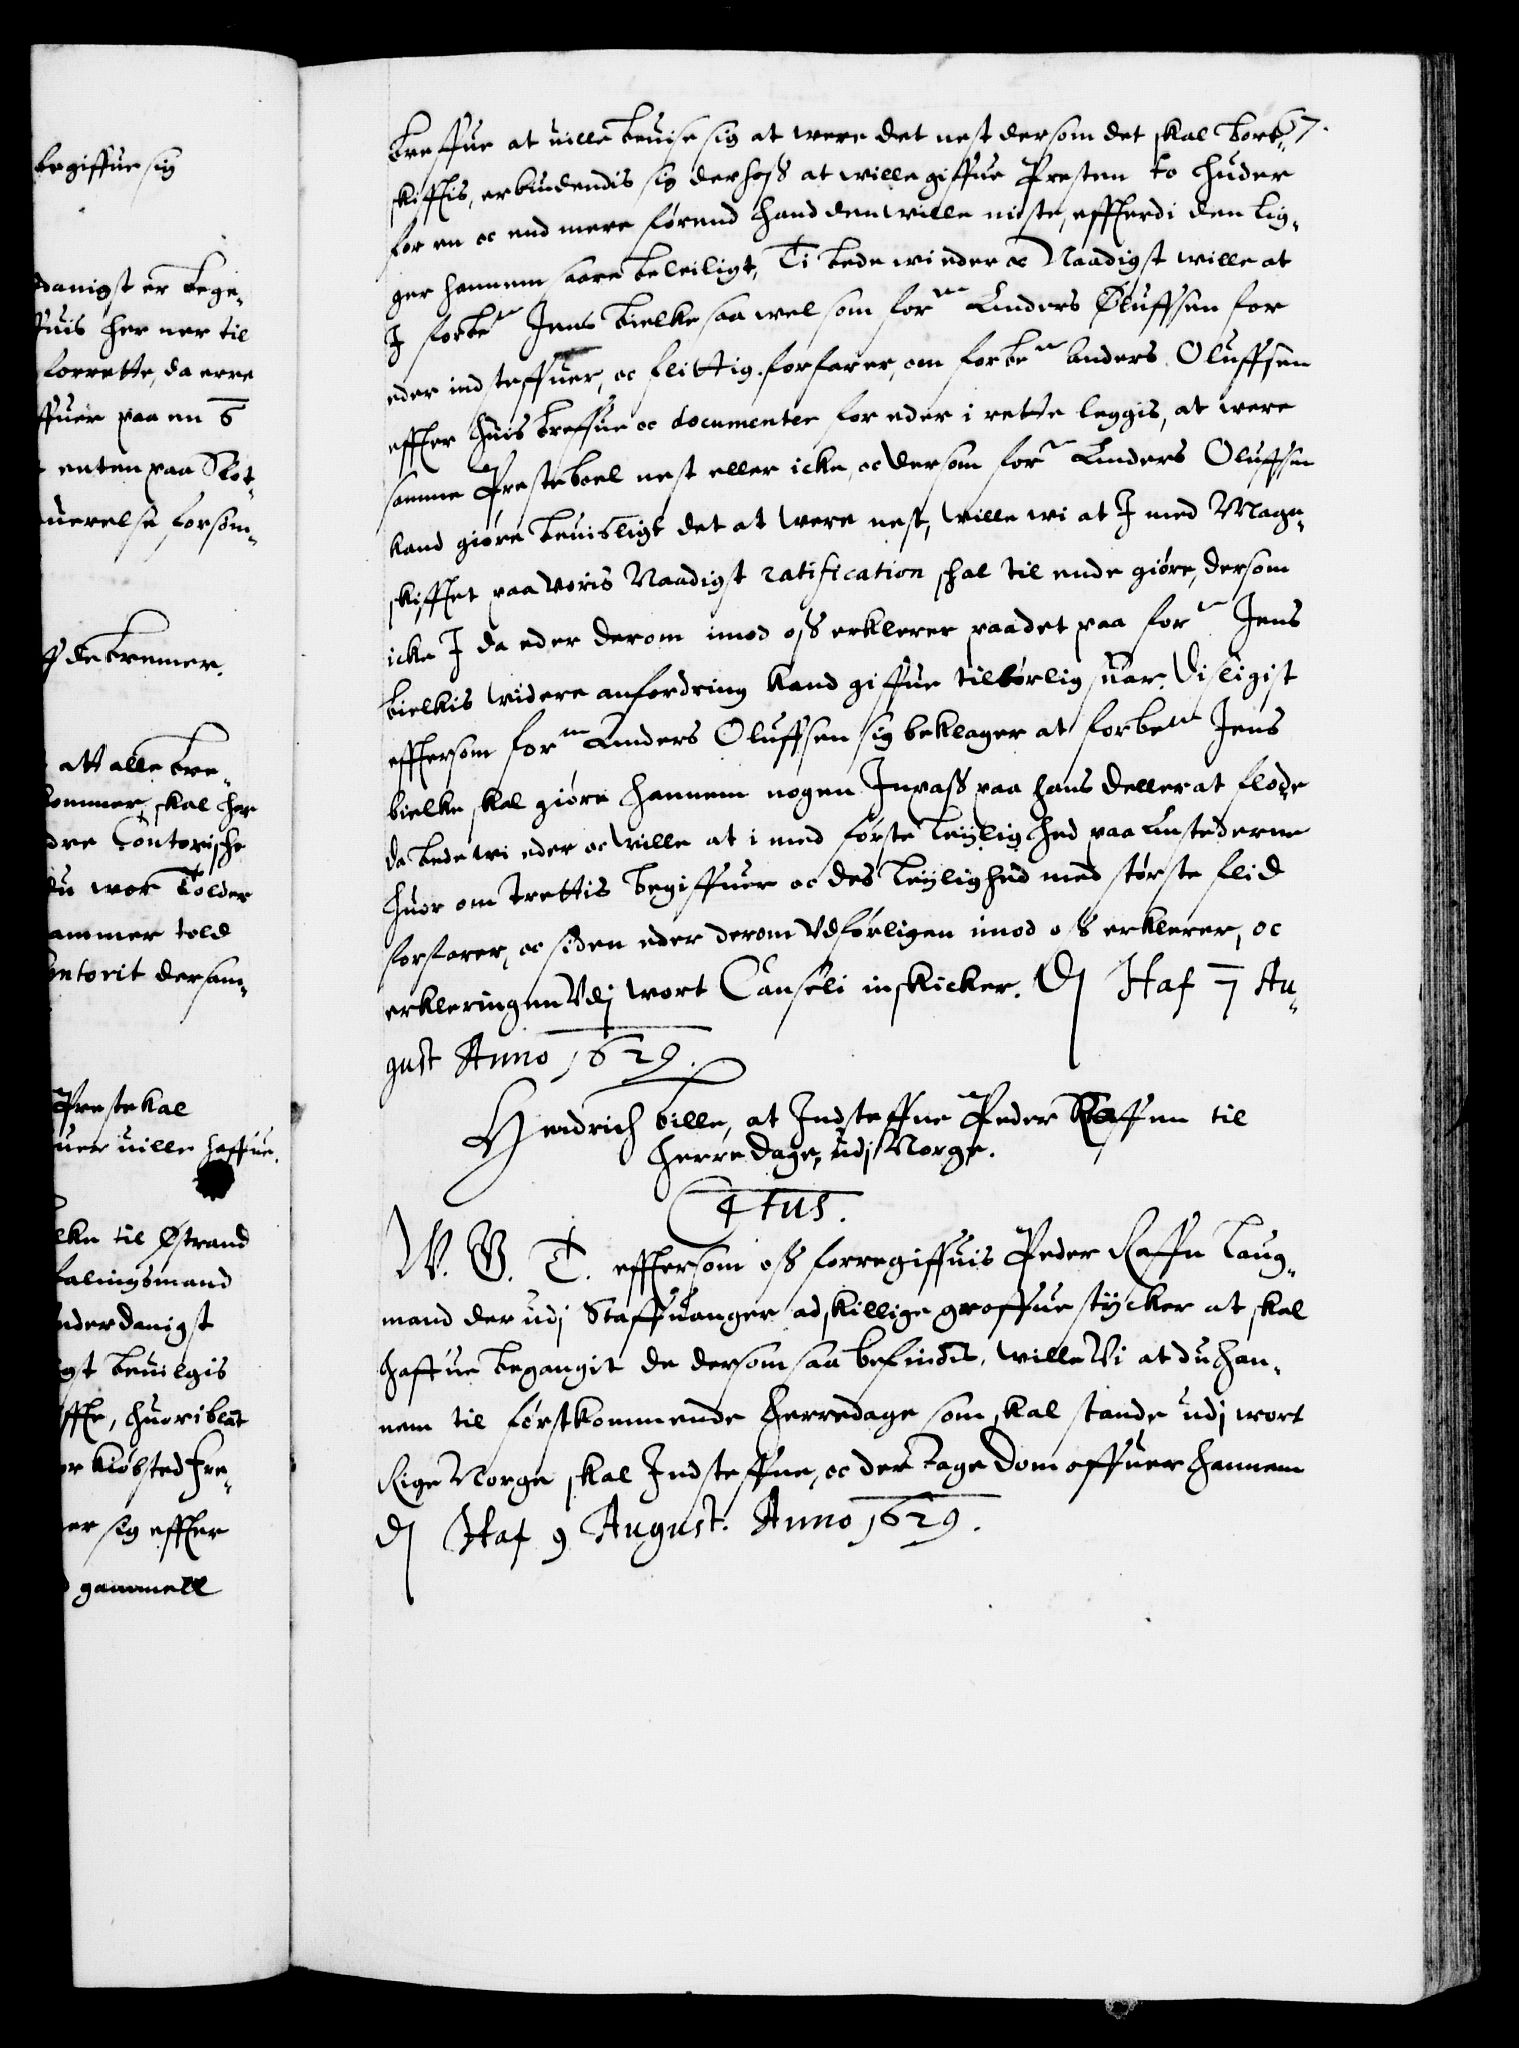 begiffue sig
danigst er bege¬
fuis her ner til
forrette, da erre
ffuer paa en 6
enten paa Slot¬
uerelse forsom¬
de bremer.
att alle bre¬
kommer, skal her
dre Contorische
du wor Tolder
ammer told
ontorit dersam¬
Prestekal
uer uille haffue.
lke til Østrand
falingsmand
nderdanigst
gst beuilgis
ffte, huoriblant
or kiøbsted Fre¬
er sig effter
gammell
57.
breffue at uille beuise sig at were det nest dersom det skal bort¬
skifftis, erbiudendis sig derhoss at wille giffue Presten to huder
for en oc end mere førend hand den wille miste, effterdi den lig¬
ger hannem saare beleiligt, Ti bede wi eder oc Naadigst wille at
I forbete Jens bielke saa wel som forne Anders Oluffsen for
eder ind steffuer, oc flittig forfarer, om forbete Anders Oluffsen
effter huis breffue oc documenter for eder i rette leggis, at were
samme Presteboel nest eller icke, oc dersom forne Anders Oluffsen
kand giøre beuisligt det at were nest, wille wi at I med Mage¬
skifftet paa woris Naadigst ratification skal til ende giøre, dersom
icke I da eder derom imod oss erklerer paadet paa forne Jens
bielkis widere anfordring kand giffue tilbørlig suar, Disligist
efftersom forne Anders Oluffsen sig beklager at forbete Jens
bielke skal giøre hannem nogen Inpass paa hans deller at fløde
da bede wi eder oc wille at i med første leylighed paa Aastederne
huor om trettis begiffuer oc des leylighed med største flid
forfarer, oc siden eder derom udførligen imod oss erklerer, oc
erkleringen udj wort Canseli inskicker. Dj Haf 7 Au¬
gust Anno 1629.
Hendrich bille, at Indsteffne Peder Raffuen til
herredage, udj Norge.
C4tus.
W. G. T. efftersom oss forregiffuis Peder Raffn laug¬
mand der udj Staffuanger adskillige groffue stycker at skal
haffue begangit da dersom saa befindis, wille Vi at du han¬
nem til førstkommende herredage som skal stande udj wort
Rige Norge skal Indsteffne, oc der tage dom offuer hannem
Dj Haf 9 August. Anno 1629.